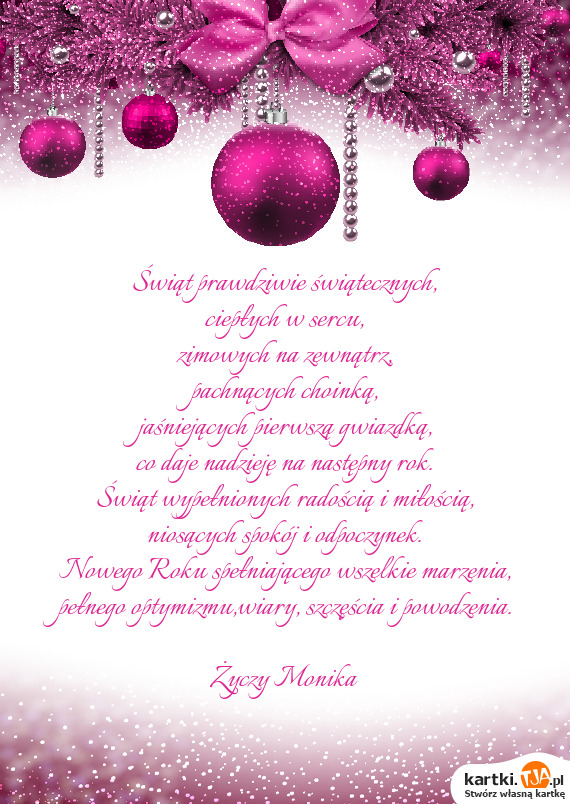 Świąt prawdziwie świątecznych,
ciepłych w sercu,
zimowych na zewnątrz,
pachnących choinką,
jaśniejących pierwszą gwiazdką,
co daje nadzieję na następny rok.
Świąt wypełnionych radością i miłością,
niosących spokój i odpoczynek.
Nowego Roku spełniającego wszelkie marzenia,
pełnego optymizmu,wiary, szczęścia i powodzenia.
Życzy Monika
kartki.TJA.pl
Stwórz własną kartkę